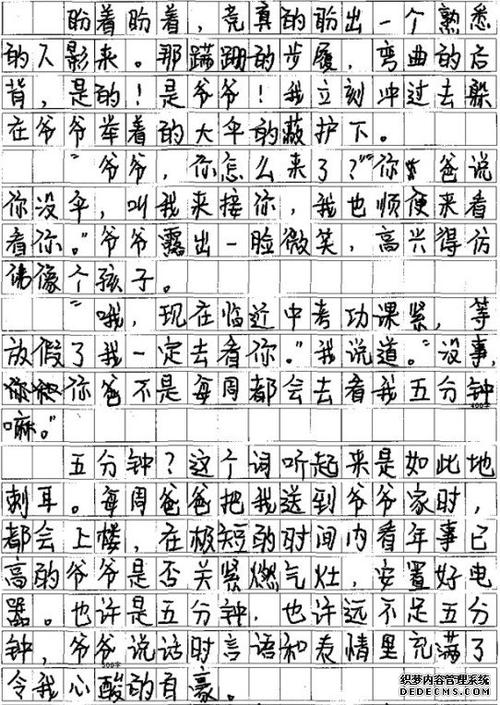 盼着盼着，竟真的盼出一个熟悉
的人影来。那蹒跚的步履，弯曲的后
背，是的！是爷爷！我立刻冲过去躲
在爷爷举着的大伞的蔽护下。
“爷爷，你怎么来了？”“你爸说
你没伞，叫我来接你，我也顺便来看
看你。”爷爷露出一脸微笑，高兴得仿
佛像个孩子。
“哦，现在临近中考功课紧，等
放假了我一定去看你。”我说道。“没事，
你爸不是每周都会去看我五分钟
400字
嘛。”
五分钟？这个词听起来是如此地
刺耳。每周爸爸把我送到爷爷家时，
都会上楼，在极短的时间内看年事已
高的爷爷是否关紧燃气灶，安置好电
器。也许是五分钟，也许远不足五分
钟，爷爷说话时言语和表情里充满了
500字
令我心酸的自豪。
织梦内容管理系统
DEDECMS.COM